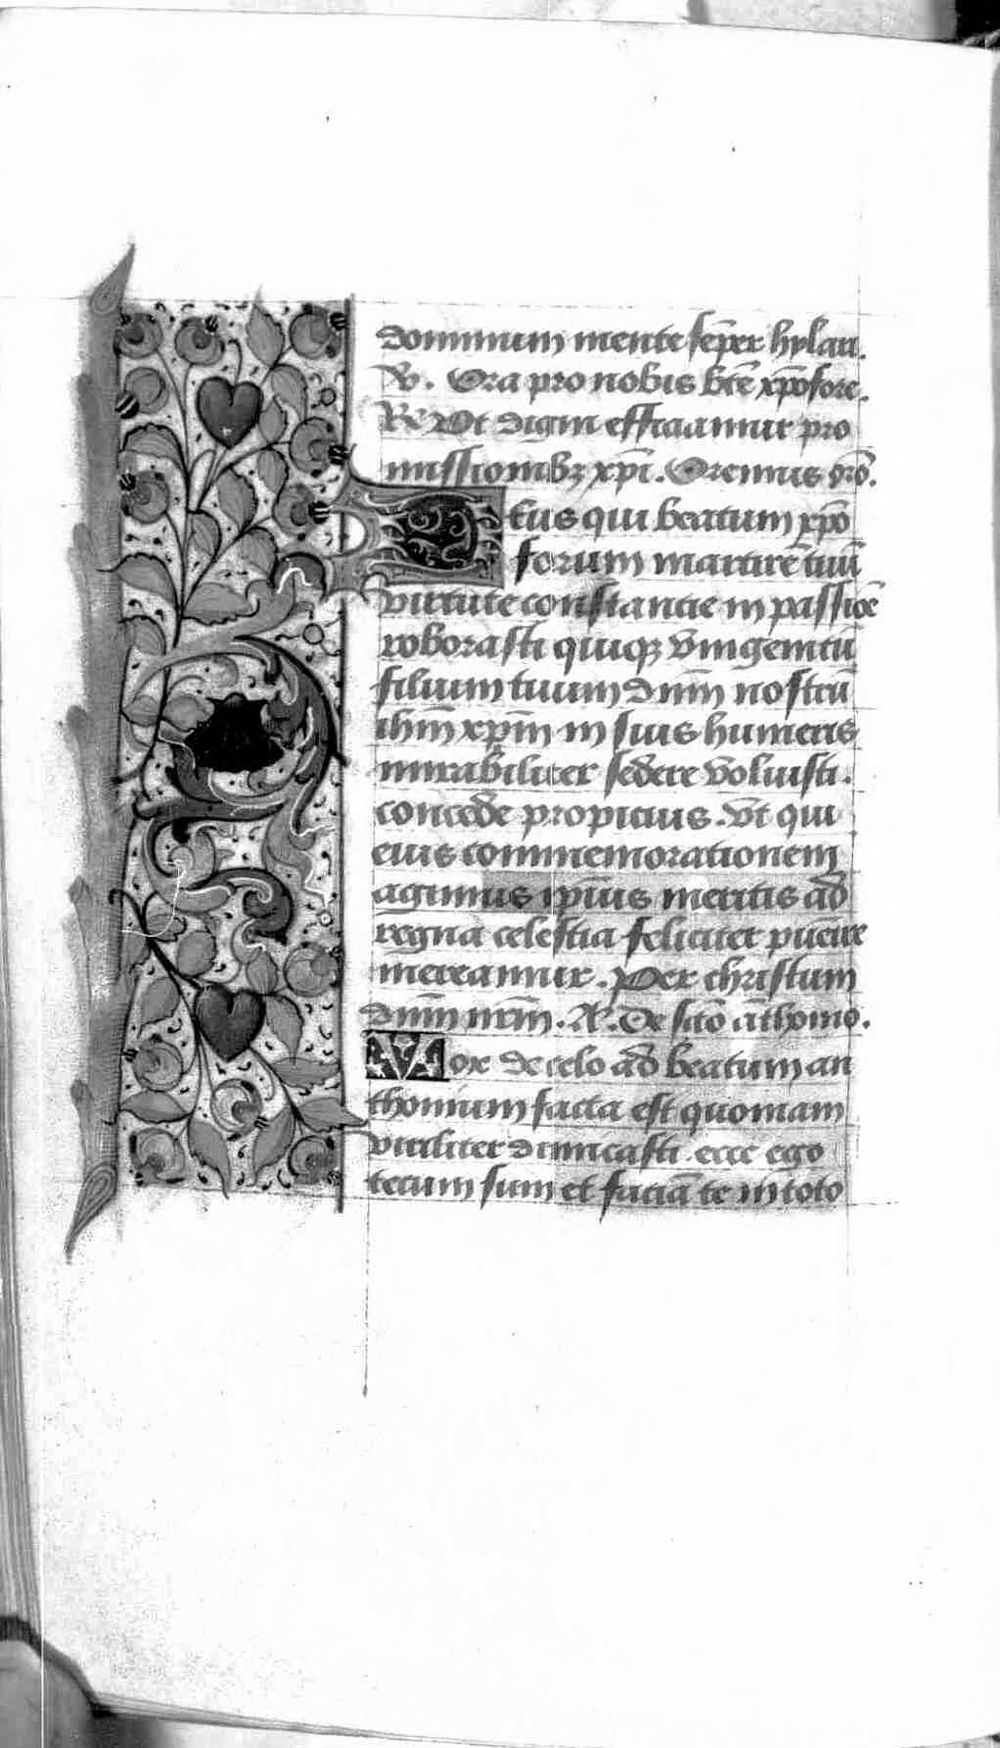 dominum mente sep̄er hylari.
V̄. Ora pro nobis btē xp̄ofore.
R̄ Vt digni efficiamur pro
missionibꝫ xp̄i. Oremus orō.
Deus qui beatum xp̄o
forum martirē tuū
virtute constantie in passiōe
roborasti quiqꝫ vnigenitū
filium tuum dn̄m nostrū
ihm̄ xp̄m in suis humeris
mirabiliter sedere voluisti.
concede propicius. vt qui
eius commemorationem
agimus ip̄ius meritis ad
regna celestia feliciter puēire
mereamur. Per christum
dn̄m nr̄m. A. De sctō āthonio.
Vox de celo ad beatum an
thonium facta est quoniam
viriliter dimicasti. ecce ego
tecum sum et faciā te in toto